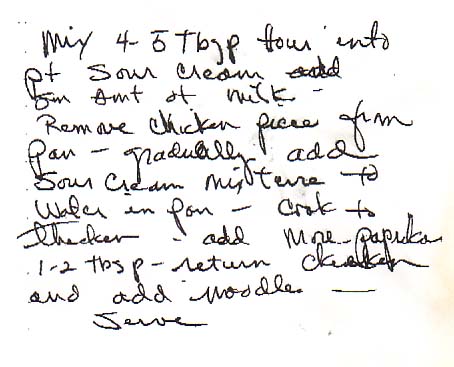 Mix 4-5 Tbsp flour into
pt Sour Cream add
sm amt of milk -
Remove chicken piece from
pan - gradually add
Sour Cream mixture to
Water in pan - Cook to
thicken - add More paprika
1-2 tbsp - return chicken
and add noodles —
Serve